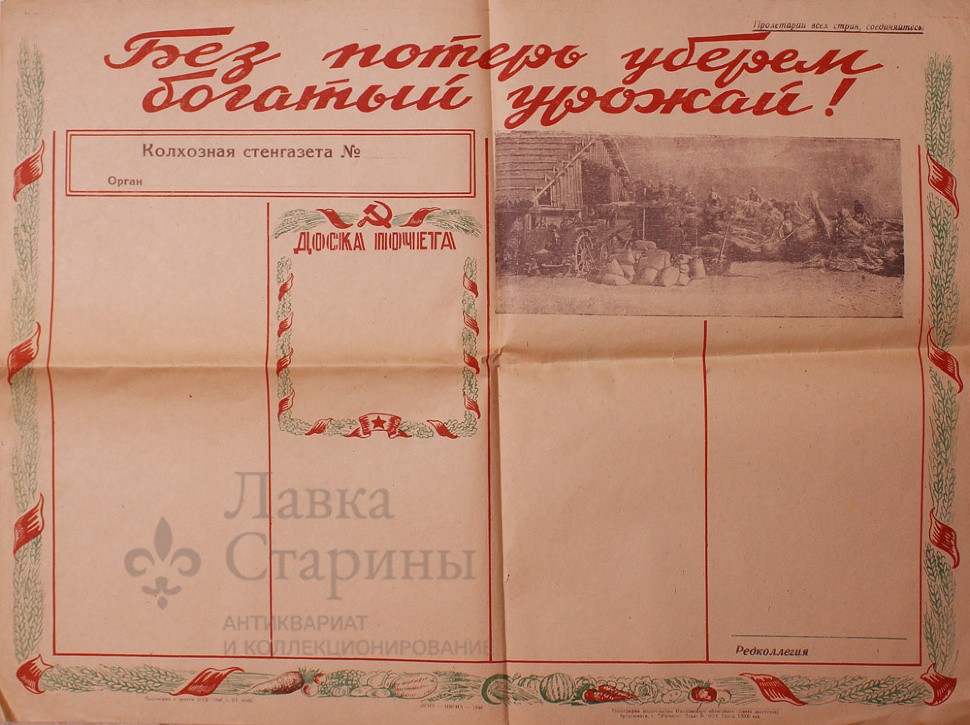 Пролетарии всех стран, соединяйтесь!
Без потерь уберем
богатый урожай!
Колхозная стенгазета №
Орган
ДОСКА ПОЧЕТА
Лавка
Старины
АНТИКВАРИАТ
И КОЛЛЕКЦИОНИРОВАНИЕ
Редколлегия